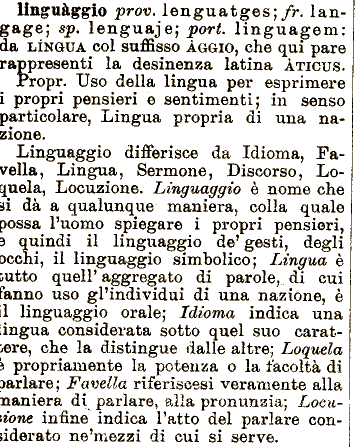 linguàggio prov. lenguatges; fr. lan-
gage; sp. lenguaje; port. linguagem:
da LÍNGUA col suffisso ÀGGIO, che qui pare
rappresenti la desinenza latina ÀTICUS.
Propr. Uso della lingua per esprimere
i propri pensieri e sentimenti; in senso
particolare, Lingua propria di una na-
zione.
Linguaggio differisce da Idioma, Fa-
vella, Lingua, Sermone, Discorso, Lo-
quela, Locuzione. Linguaggio è nome che
si dà a qualunque maniera, colla quale
possa l'uomo spiegare i propri pensieri,
e quindi il linguaggio de' gesti, degli
occhi, il linguaggio simbolico; Lingua è
tutto quell' aggregato di parole, di cui
fanno uso gl'individui di una nazione, è
il linguaggio orale; Idioma indica una
lingua considerata sotto quel suo carat-
tere, che la distingue dalle altre; Loquela
è propriamente la potenza o la facoltà di
parlare; Favella riferiscesi veramente alla
maniera di parlare, alla pronunzia; Locu-
zione infine indica l'atto del parlare con-
siderato ne'mezzi di cui si serve.